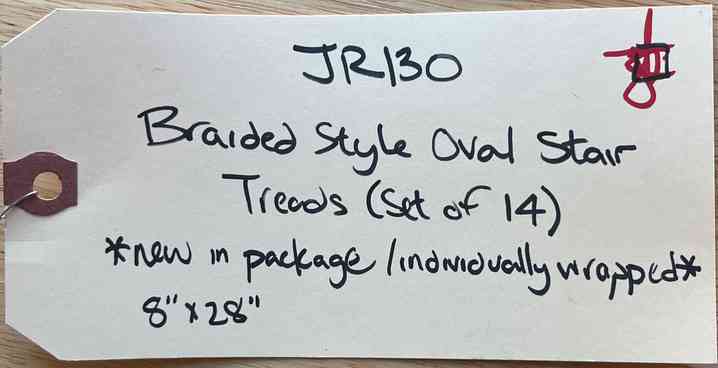 JR130
Braided Style Oval Stair
Treads (Set of 14)
*new in package / individually wrapped*
8" x 28"